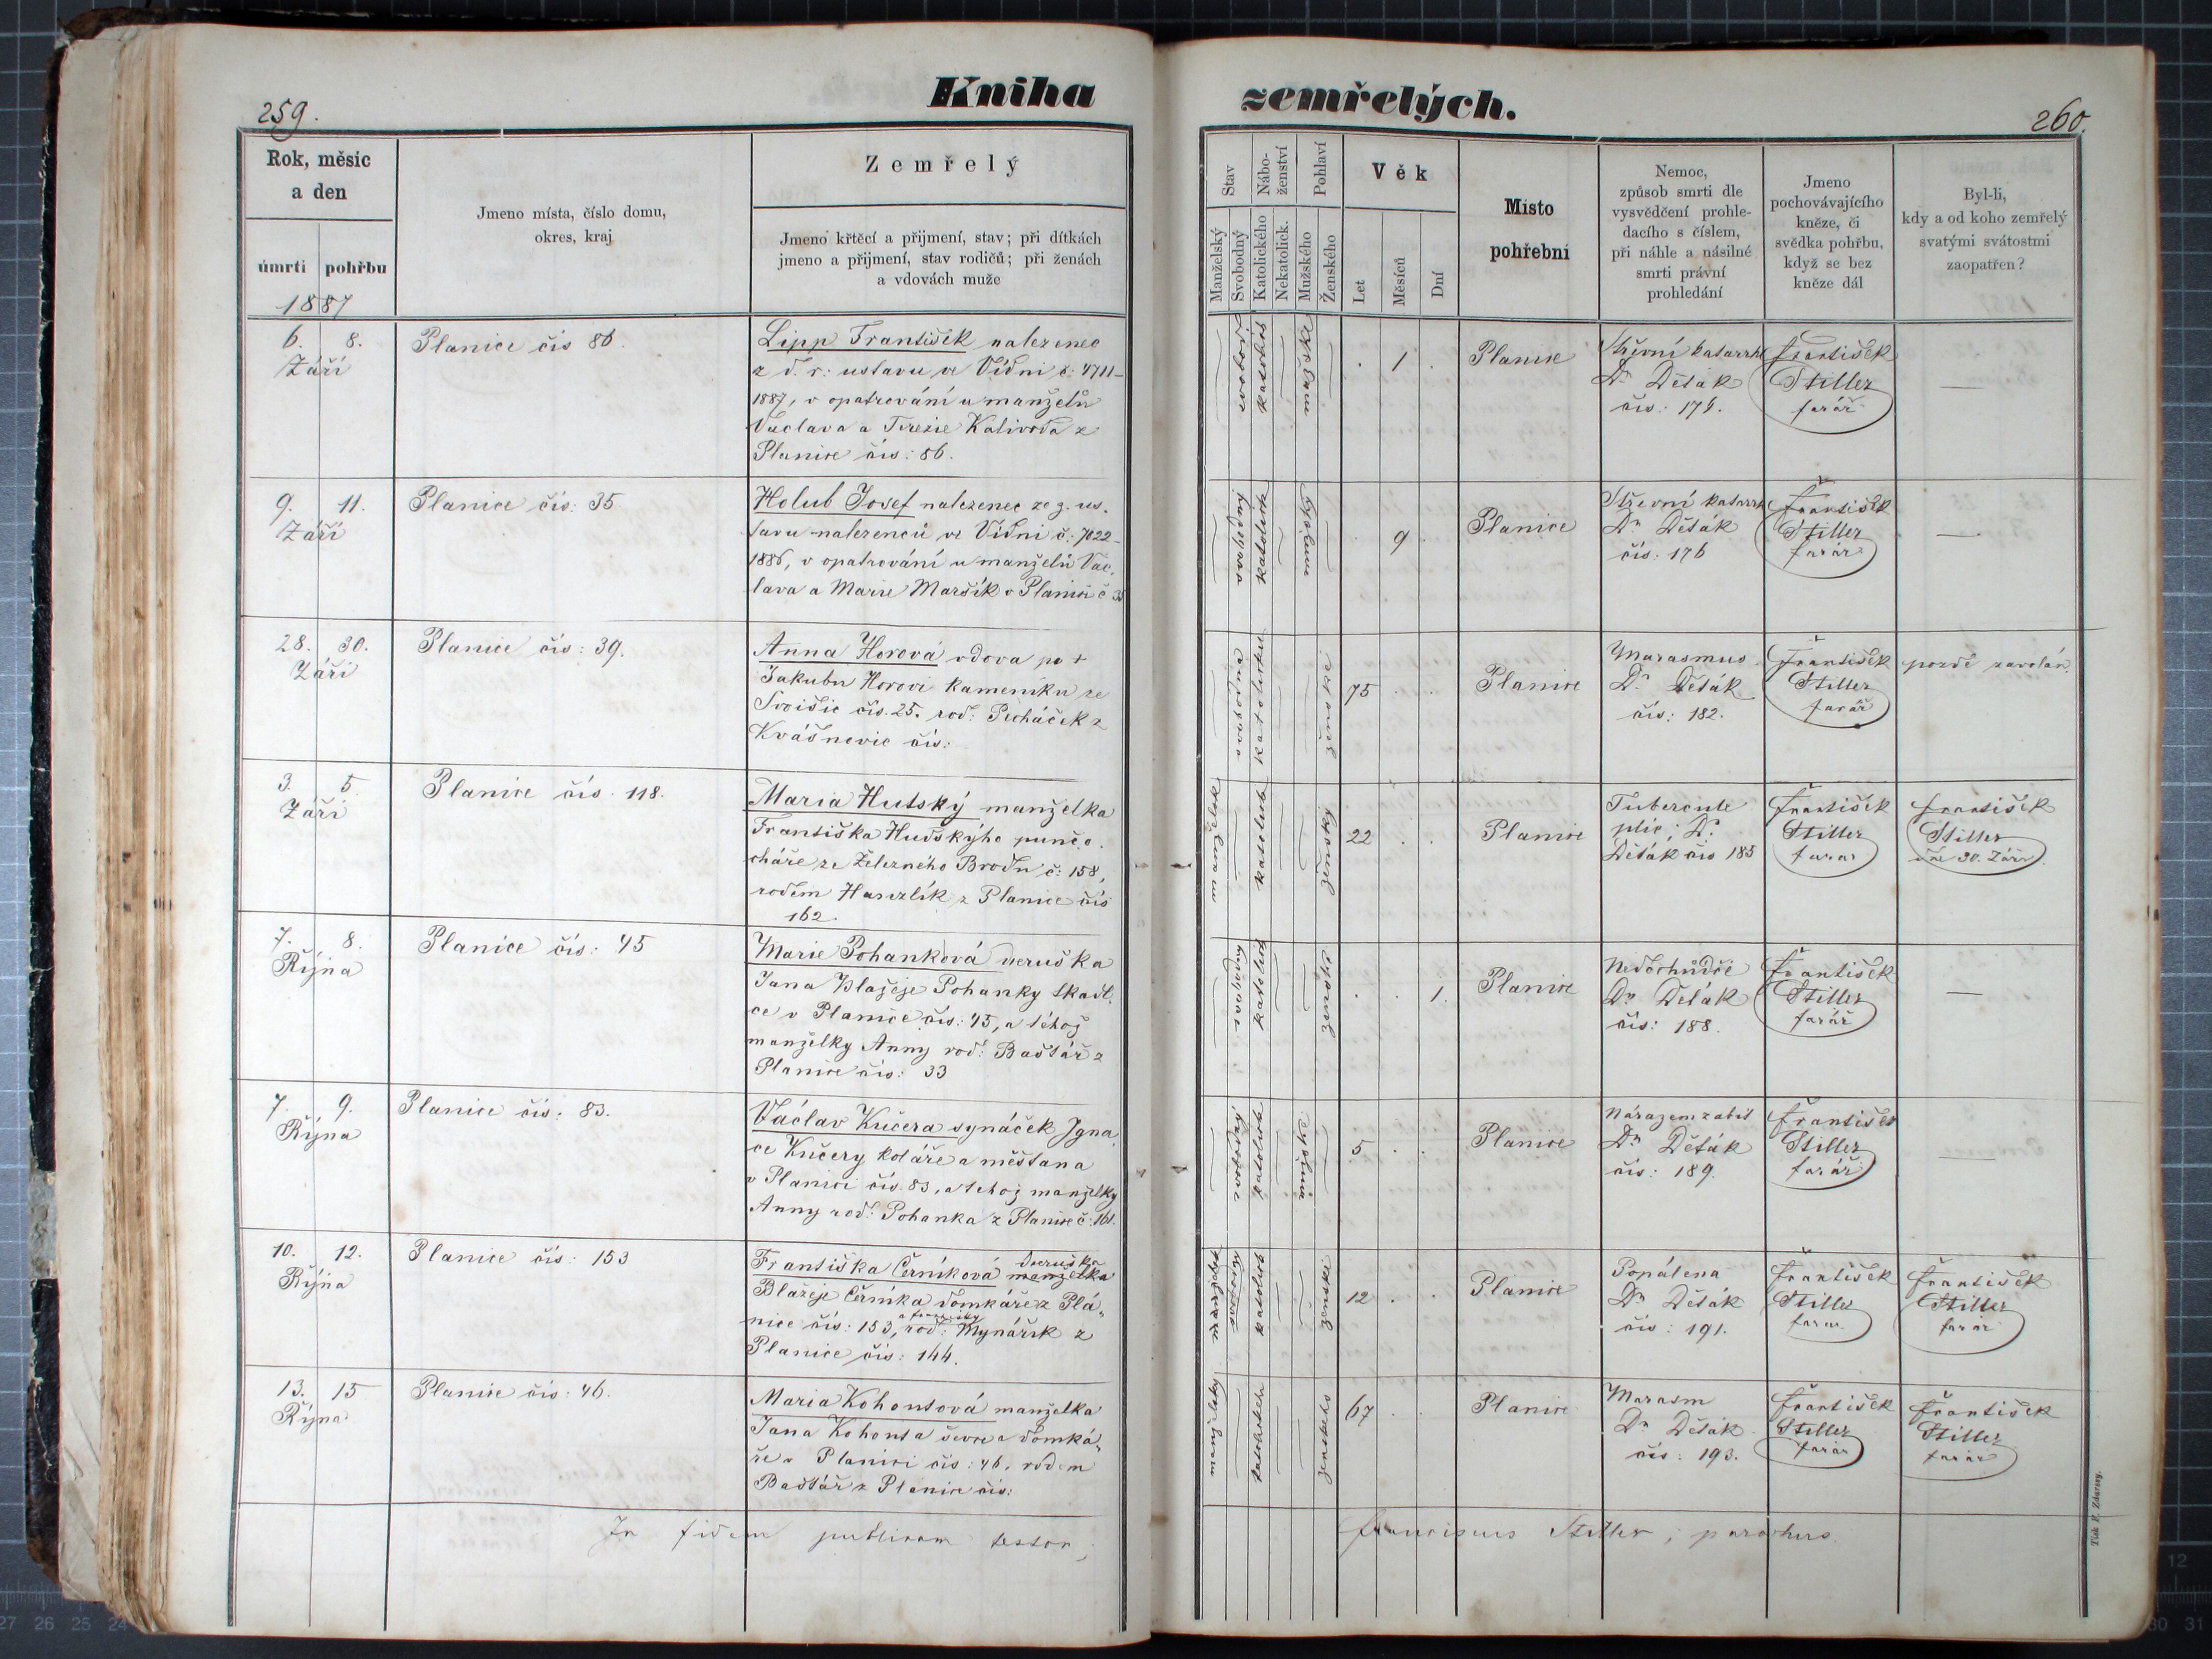 Kniha
259.
Rok, měsíc
a den
úmrtí pohřbu
1887
Jmeno místa, číslo domu,
okres, kraj
Zemřelý
Jmeno křtěcí a přijmení, stav; při dítkách
jmeno a přijmení, stav rodičů; při ženách
a vdovách muže
6. 8.
Září
Planice čís 86.
Lipp František nalezenec
z d. r. ustavu ve Vídni č: 4711-
1887, v opatrování u manželů
Vaclava a Terezie Kalivoda z
Planice čís: 86.
9. 11.
Září
Planice čís: 35
Holub Josef nalezenec ze z. us-
tavu nalezenců ve Vídni č: 7022-
1886, v opatrování u manželů Vác-
lava a Marie Maršík v Planici č 35
28. 30.
Září
Planice čís: 39.
Anna Horová vdova po +
Jakubu Horovi kameníku ze
Svišic čís. 25. roď: Pecháček z
Kvášnovic čís:
3. 5.
Září
Planice čís. 118.
Maria Hutský manželka
Františka Hudského punčo-
cháře ze Železného Brodu č: 158,
rodem Hanzlík z Planice čís
162.
7. 8.
Října
Planice čís: 45
Marie Pohanková dceruška
Jana Blažeje Pohanky tkadl-
ce v Planice čís: 45, a téhož
manželky Anny roď: Baštář z
Planice čís: 33
7. 9.
Října
Planice čís: 83.
Václav Kučera synáček Igna-
ce Kučery koláře a měštana
v Planici čís. 83, a tehož manželky
Anny roď: Pohanka z Planice č: 161.
10. 12.
Října
Planice čís: 153
Františka Černíková manželka dceruška
Blažeje Černíka domkáře z Plá-
nice čís: 153, roď: Mynářík z
Planice čís: 144.
13. 15
Října
Planice čís: 46.
Maria Kohoutová manželka
Jana Kohouta ševce a domká-
ře v Planici čís: 46. rodem
Baštář z Planice čís:
In fidem publicam testor,
zemřelých.
260.
Stav
Nábo-
ženství
Pohlaví
Věk
Manželský
Svobodný
Katolického
Nekatolick.
Mužského
Ženského
Let
Měsíců
Dní
Místo
pohřební
Nemoc,
způsob smrti dle
vysvědčení prohle-
dacího s číslem,
při náhle a násilné
smrti právní
prohledání
Jmeno
pochovávajícího
kněze, či
svědka pohřbu,
když se bez
kněze dál
Byl-li,
kdy a od koho zemřelý
svatými svátostmi
zaopatřen?
1
Planice
Střevní katarrh
Dr Děták
čís: 176.
František
Stiller
farář
9
Planice
Střevní katarrh
Dr Děták
čís: 176
František
Stiller
farář
svobodna
75
Planice
Marasmus
Dr Děták
čís: 182.
František
Stiller
farář
pozdě zavolán.
22
Planice
Tubercule
plic; Dr
Děták čís 185
František
Stiller
farar
František
Stiller
dne 30. Září
svobodny
1.
Planice
Nedochůdče
Dr Deták
čís: 188.
František
Stiller
farář
svobodny
5
Planice
Nárazem zabit
Dr Děták
čís: 189.
František
Stiller
farář
12
Planice
Popálena
Dr Děták
čís: 191.
František
Stiller
farar
František
Stiller
farár
67
Planice
Marasm
Dr Děták
čís: 193.
František
Stiller
farár
František
Stiller
farár
Franciscus Stiller, parochus.
Tisk F. Zdarssy.